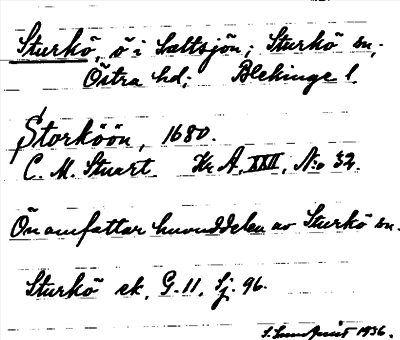 Sturkö, ö i Saltsjön; Sturkö sn,
Östra hd; Blekinge l.
Storköön, 1680.
C. M. Stuart Kr A, XXII, No 32.
Ön omfattar huvuddelen av Sturkö sn.
Sturkö sk. G. 11. Sj. 96.
1936.